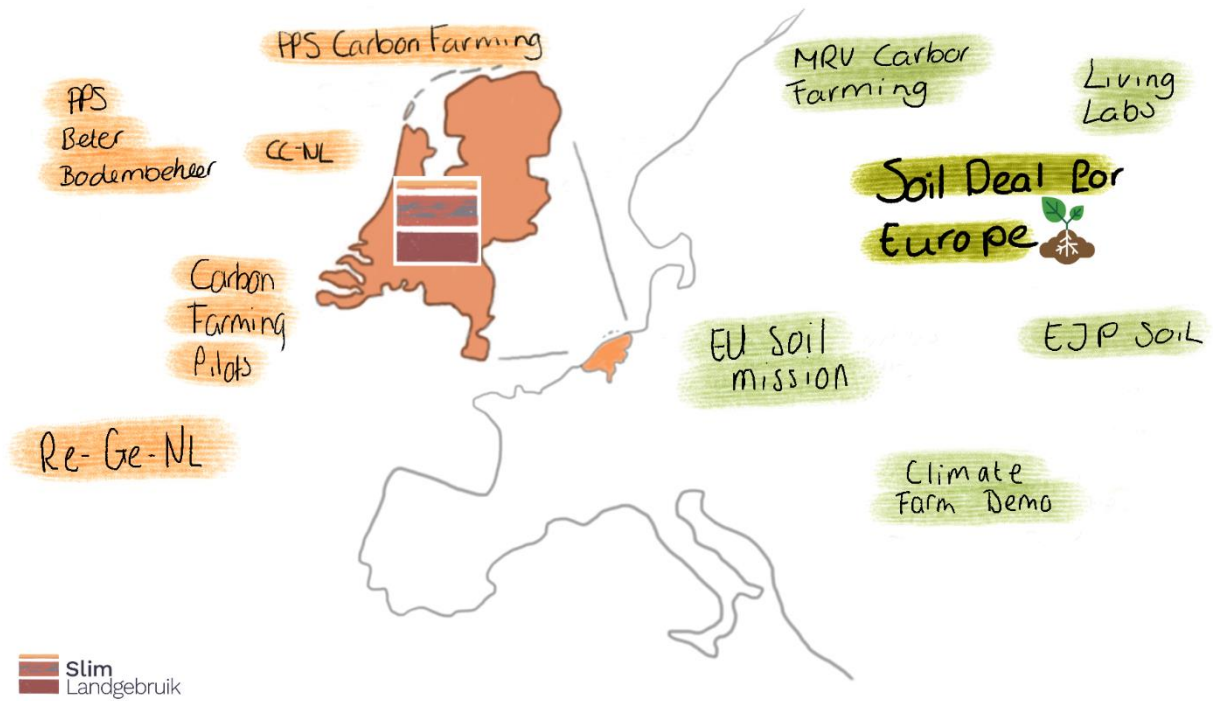 PPS Carbon Farming
PPS
Beter
Bodembeheer
CC-NL
Carbon
Farming
Pilots
Re-Ge-NL
MRV Carbon
Farming
Living
Labs
Soil Deal for
Europe
EU Soil
mission
EJP SOIL
Climate
Farm Demo
Slim
Landgebruik